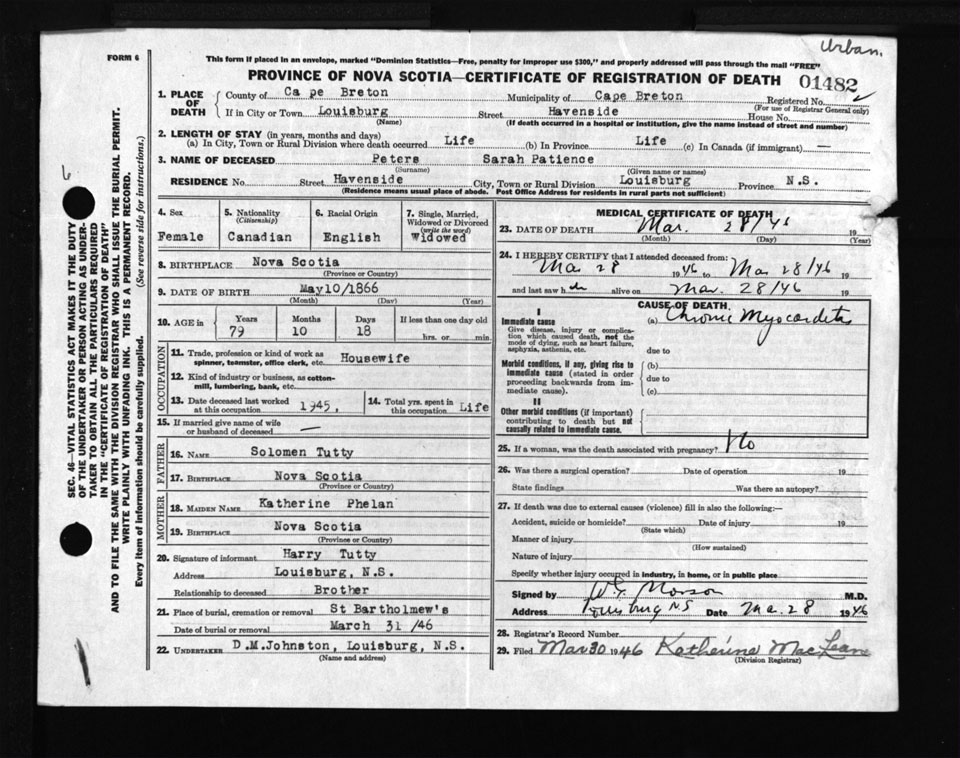 Urban.
FORM 6
This form if placed in an envelope, marked "Dominion Statistics—Free, penalty for improper use $300," and properly addressed will pass through the mail "FREE"
PROVINCE OF NOVA SCOTIA—CERTIFICATE OF REGISTRATION OF DEATH 01482
1. PLACE OF DEATH
County of Ca pe Breton Municipality of Cape Breton Registered No.
(For use of Registrar General only)
If in City or Town Louisburg Street Havenside House No.
(Name) (If death occurred in a hospital or institution, give the name instead of street and number)
2. LENGTH OF STAY (in years, months and days)
(a) In City, Town or Rural Division where death occurred Life (b) In Province Life (c) In Canada (if immigrant) —
3. NAME OF DECEASED Peters Sarah Patience
(Surname) (Given name or names)
RESIDENCE No. Street Havenside City, Town or Rural Division Louisburg Province N.S.
(Residence means usual place of abode. Post Office Address for residents in rural parts not sufficient)
4. Sex
Female
5. Nationality
(Citizenship)
Canadian
6. Racial Origin
English
7. Single, Married, Widowed or Divorced
(write the word)
Widowed
8. BIRTHPLACE Nova Scotia
(Province or Country)
9. DATE OF BIRTH May10/1866
(Month) (Day) (Year)
10. AGE in
Years Months Days If less than one day old
79 10 18 hrs. or min.
OCCUPATION
11. Trade, profession or kind of work as spinner, teamster, office clerk, etc. Housewife
12. Kind of industry or business, as cotton-mill, lumbering, bank, etc.
13. Date deceased last worked at this occupation 1945. 14. Total yrs. spent in this occupation Life
15. If married give name of wife or husband of deceased —
FATHER
16. NAME Solomen Tutty
17. BIRTHPLACE Nova Scotia
(Province or Country)
MOTHER
18. MAIDEN NAME Katherine Phelan
19. BIRTHPLACE Nova Scotia
(Province or Country)
20. Signature of informant Harry Tutty
Address Louisburg, N.S.
Relationship to deceased Brother
21. Place of burial, cremation or removal St Bartholmew's
Date of burial or removal March 31 /46
22. UNDERTAKER D.M.Johnston, Louisburg, N.S.
(Name and address)
MEDICAL CERTIFICATE OF DEATH
23. DATE OF DEATH Mar. 28/46 19
(Month) (Day) (Year)
24. I HEREBY CERTIFY that I attended deceased from:
Mar 28 1946 to Mar 28/46 19
and last saw her alive on Mar. 28/46 19
CAUSE OF DEATH
I
Immediate cause (a) Chronic Myocarditis
Give disease, injury or complication which caused death, not the mode of dying, such as heart failure, asphyxia, asthenia, etc.
due to
Morbid conditions, if any, giving rise to immediate cause (stated in order proceeding backwards from immediate cause).
(b)
due to
(c)
II
Other morbid conditions (if important) contributing to death but not causally related to immediate cause.
25. If a woman, was the death associated with pregnancy? No
26. Was there a surgical operation? Date of operation 19
State findings Was there an autopsy?
27. If death was due to external causes (violence) fill in also the following:—
Accident, suicide or homicide? Date of injury 19
(State which)
Manner of injury
(How sustained)
Nature of injury
Specify whether injury occurred in industry, in home, or in public place
Signed by M.D.
Address Louisburg N.S Date Mar. 28 1946
28. Registrar's Record Number
29. Filed Mar 30 1946 Katherine MacLeane
(Division Registrar)
SEC. 46—VITAL STATISTICS ACT MAKES IT THE DUTY
OF THE UNDERTAKER OR PERSON ACTING AS UNDER-
TAKER TO OBTAIN ALL THE PARTICULARS REQUIRED
IN THE "CERTIFICATE OF REGISTRATION OF DEATH"
AND TO FILE THE SAME WITH THE DIVISION REGISTRAR WHO SHALL ISSUE THE BURIAL PERMIT.
WRITE PLAINLY WITH UNFADING INK. THIS IS A PERMANENT RECORD.
Every item of information should be carefully supplied. (See reverse side for instructions.)